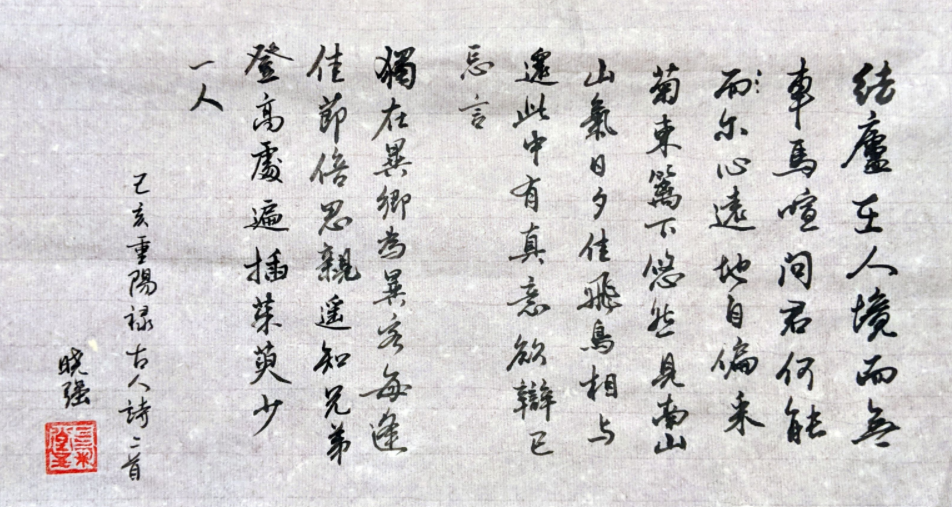 結廬在人境而無
車馬喧問君何能
爾心遠地自偏采
菊東籬下悠然見南山
山氣日夕佳飛鳥相與
還此中有真意欲辯已
忘言
獨在異鄉為異客每逢
佳節倍思親遥知兄弟
登高處遍插茱萸少
一人
己亥重陽禄古人詩二首
晓强